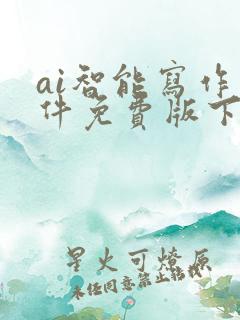 ai智能寫作
件免費版下
星火可燎原
未经同意禁止转载